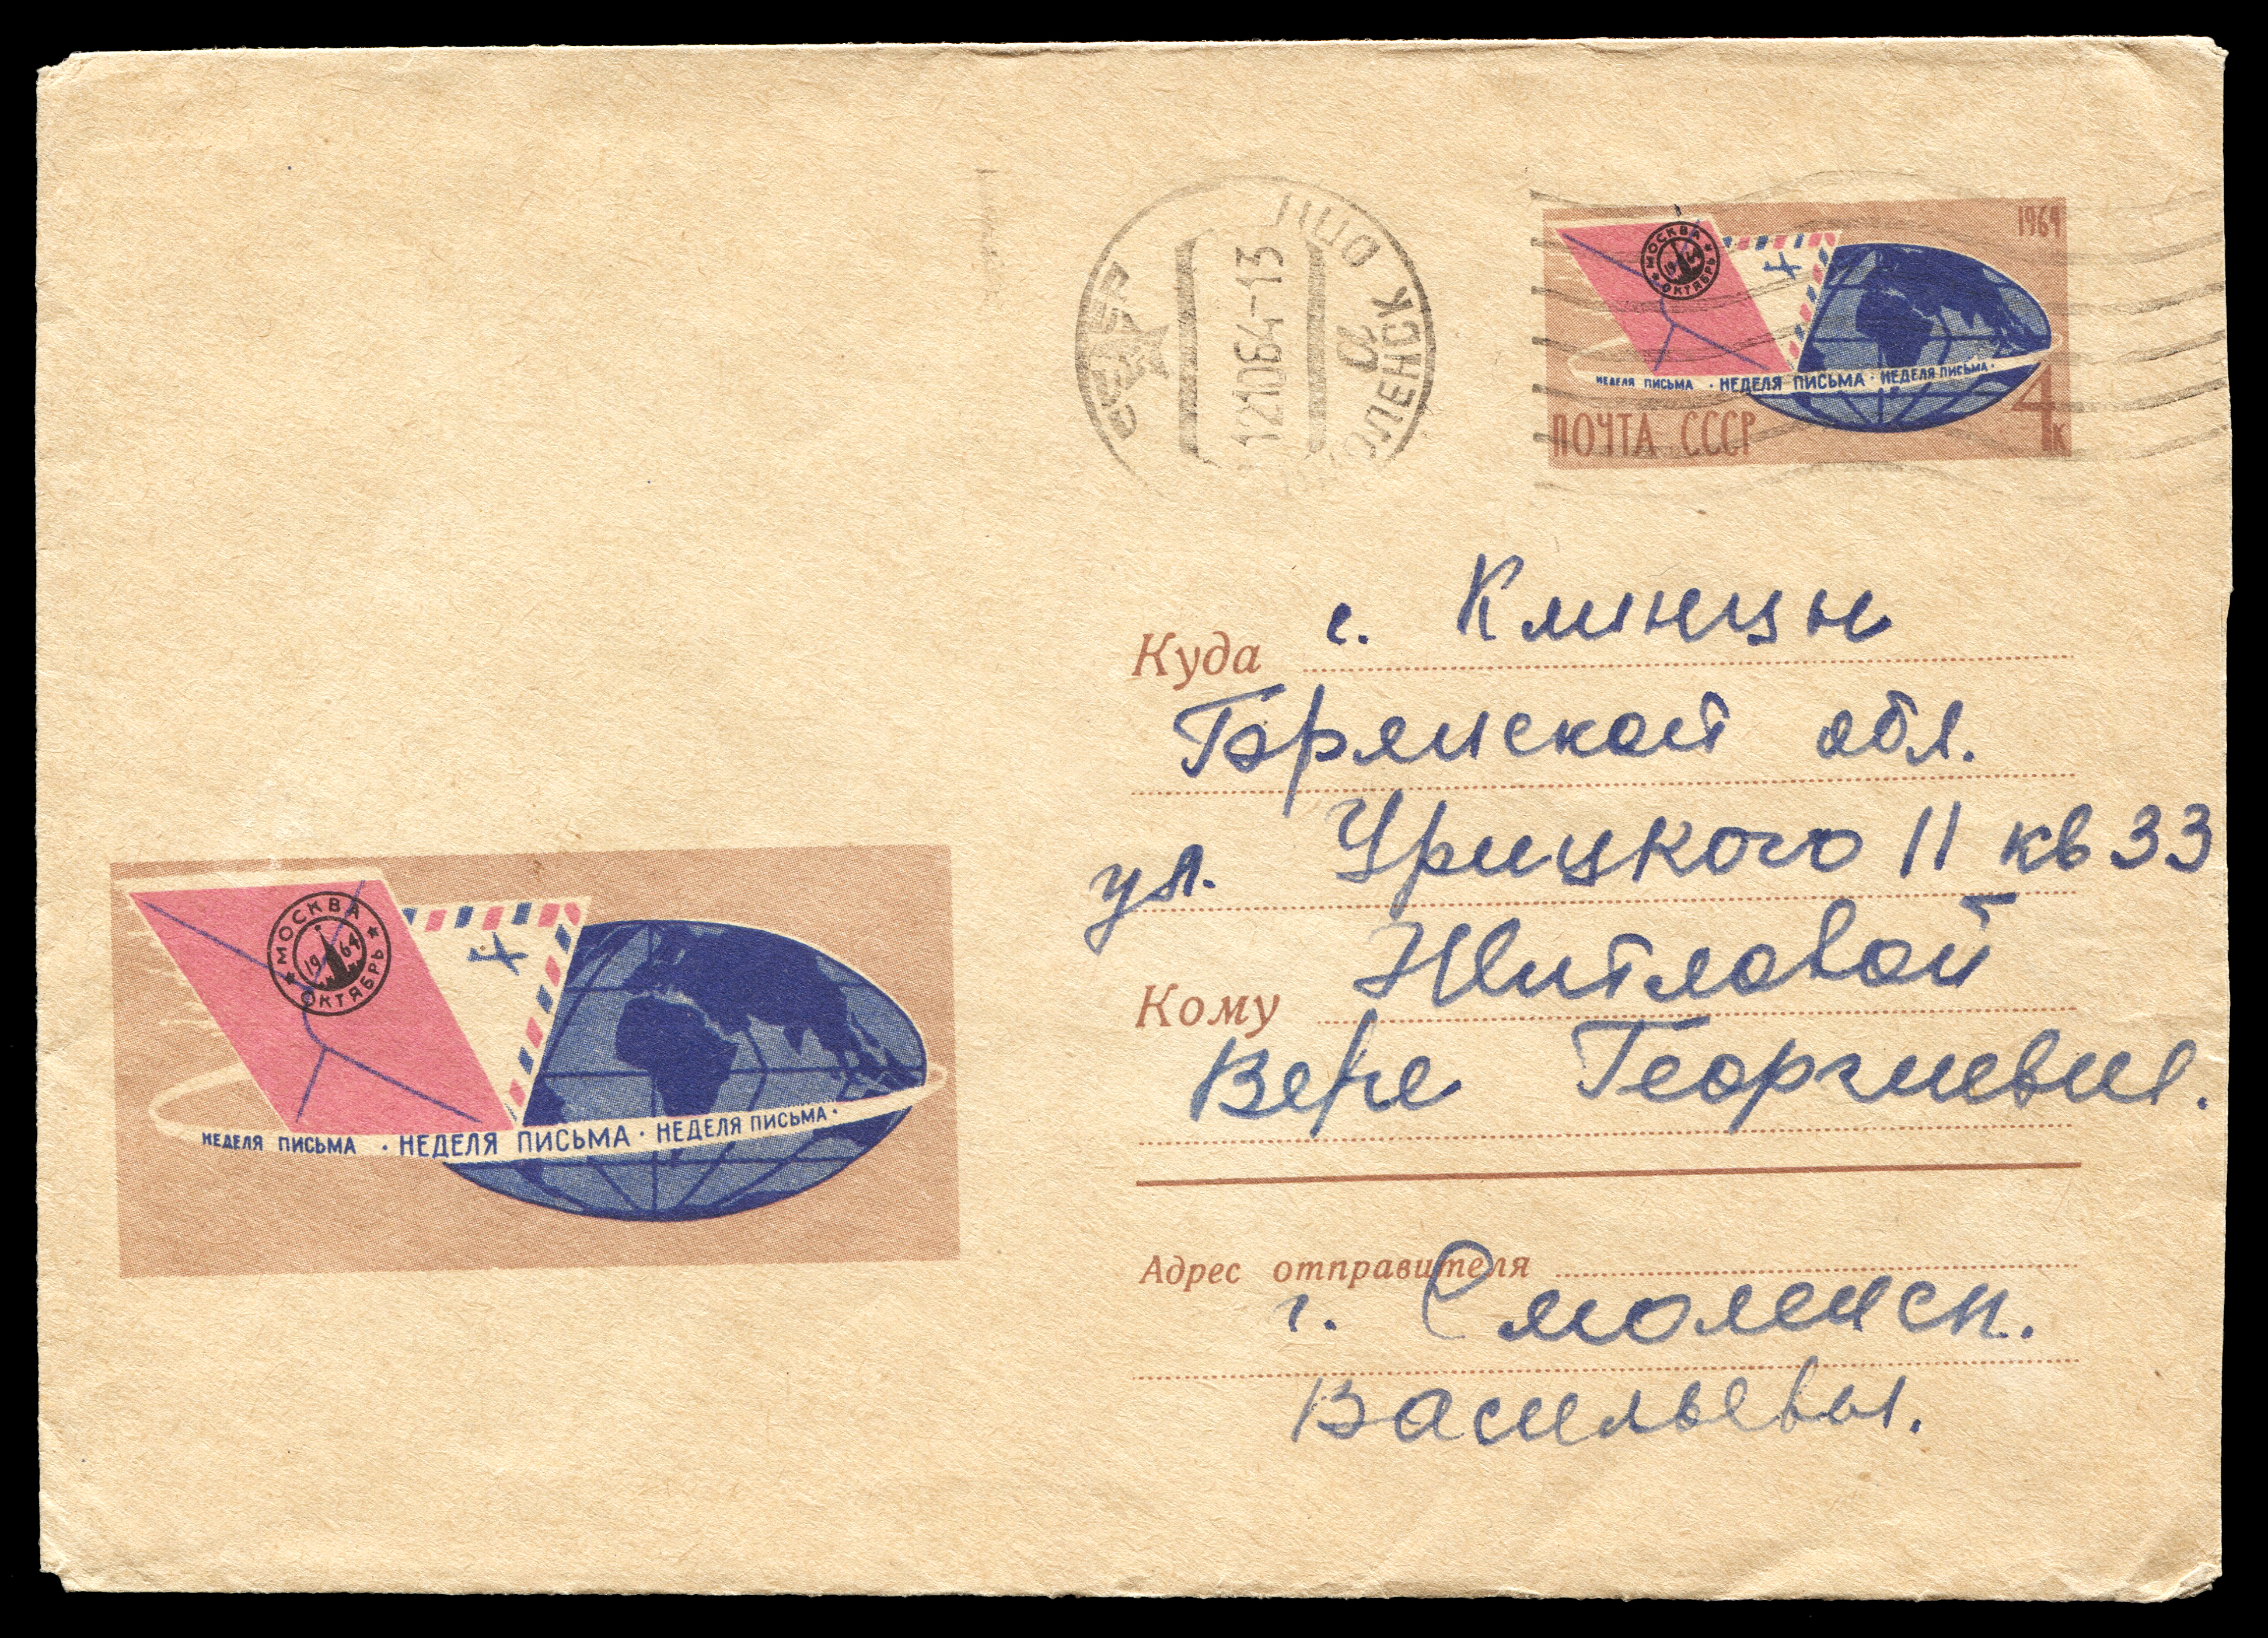 СССР
ПЦО
СМОЛЕНСК
а
121064-13
1964
МОСКВА
1964
ОКТЯБРЬ
НЕДЕЛЯ ПИСЬМА · НЕДЕЛЯ ПИСЬМА · НЕДЕЛЯ ПИСЬМА ·
ПОЧТА СССР
4к
Куда г. Клинцы
Брянской обл.
ул. Урицкого 11 кв 33
Кому Житловой
Вере Георгиевне.
МОСКВА
1964
ОКТЯБРЬ
НЕДЕЛЯ ПИСЬМА · НЕДЕЛЯ ПИСЬМА · НЕДЕЛЯ ПИСЬМА ·
Адрес отправителя
г. Смоленск.
Васильевы.